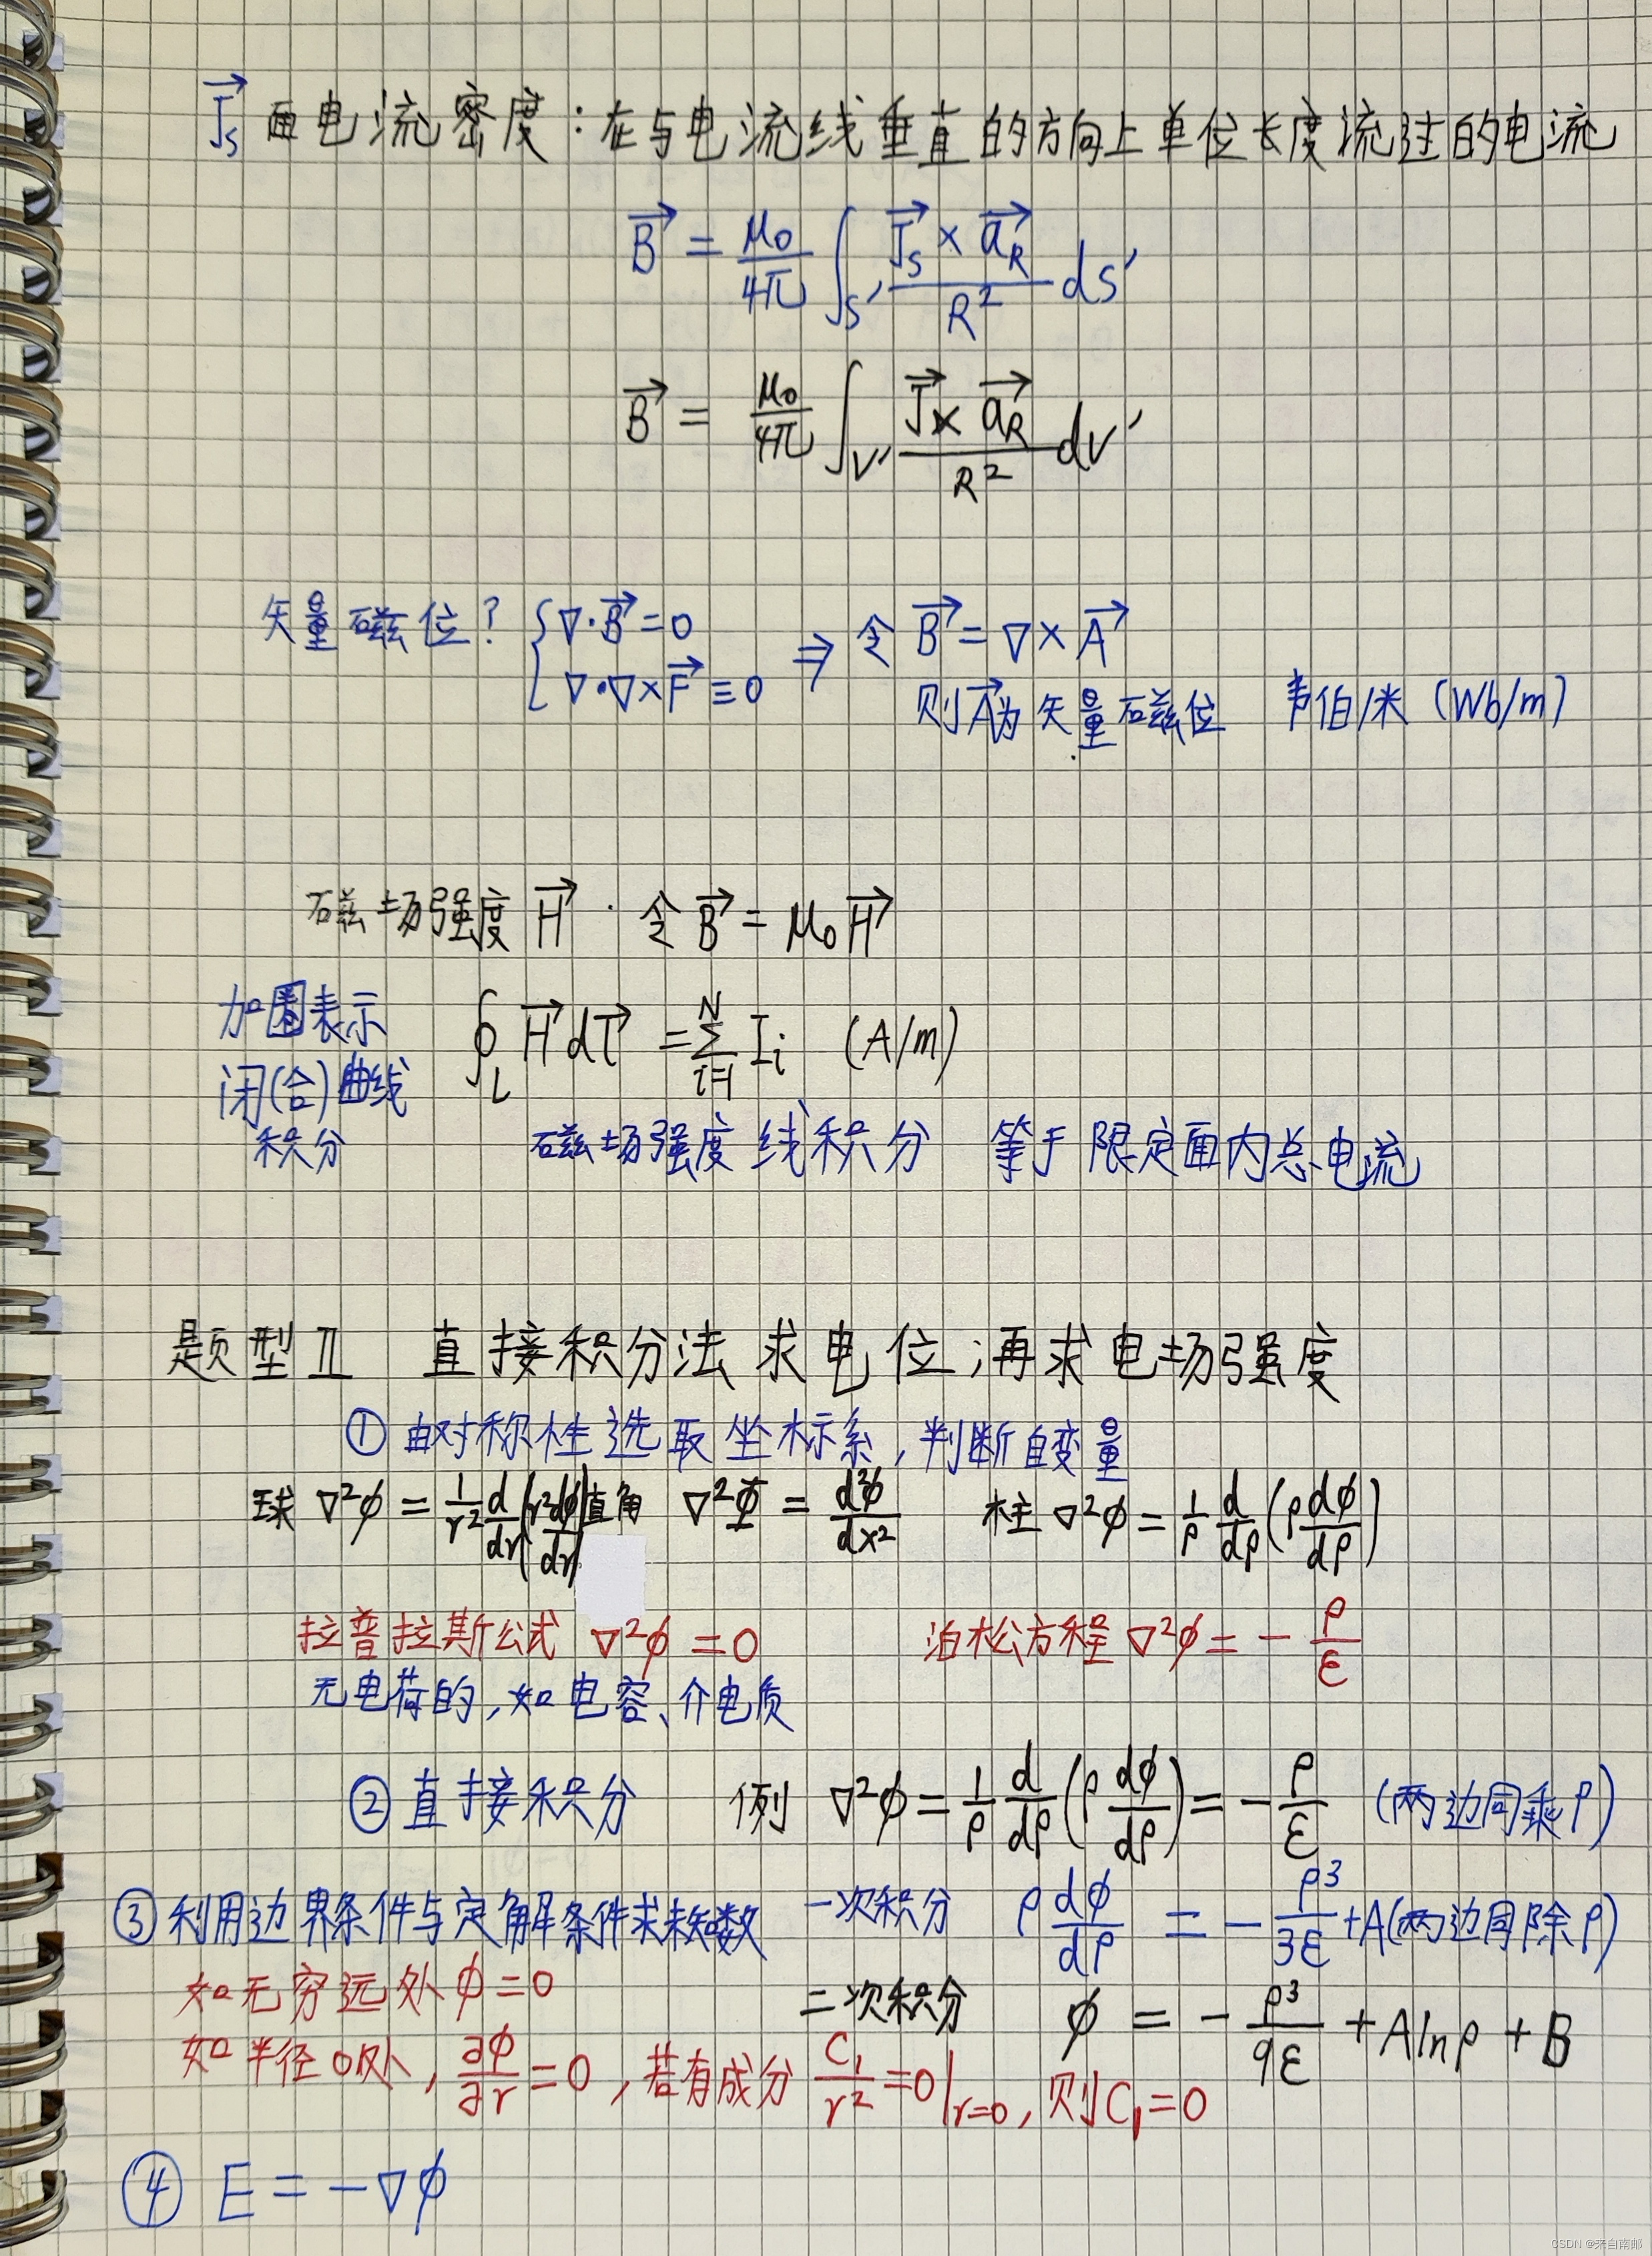 J⃗s 面电流密度：在与电流线垂直的方向上单位长度流过的电流
B⃗ = μ₀/4π ∫s′ (J⃗s × a⃗R)/R² ds′
B⃗ = μ₀/4π ∫v′ (J⃗ × a⃗R)/R² dv′
矢量磁位？ { ∇·B⃗ = 0 ; ∇·∇×F⃗ ≡ 0 ⇒ 令 B⃗ = ∇×A⃗
则A⃗为矢量磁位 韦伯/米 (Wb/m)
磁场强度 H⃗ · 令 B⃗ = μ₀H⃗
加圈表示
闭(合)曲线
积分
∮L H⃗ dl⃗ = Σ(i=1→N) Ii (A/m)
磁场强度线积分 等于限定面内总电流
题型Ⅱ 直接积分法求电位；再求电场强度
① 由对称性选取坐标系，判断自变量
球 ∇²φ = 1/r² d/dr (r²dφ/dr) 直角 ∇²Φ = d²φ/dx² 柱 ∇²φ = 1/ρ d/dρ (ρ dφ/dρ)
拉普拉斯公式 ∇²φ = 0 泊松方程 ∇²φ = - ρ/ε
无电荷的，如电容、介电质
② 直接积分 例 ∇²φ = 1/ρ d/dρ (ρ dφ/dρ) = - ρ/ε (两边同乘ρ)
一次积分 ρ dφ/dρ = - ρ³/3ε + A (两边同除ρ)
二次积分 φ = - ρ³/9ε + Alnρ + B
③ 利用边界条件与定解条件求未知数
如无穷远处 φ = 0
如半径0处，∂φ/∂r = 0，若有成分 C₁/r² = 0|r=0，则C₁ = 0
④ E = -∇φ
CSDN @来自南邮